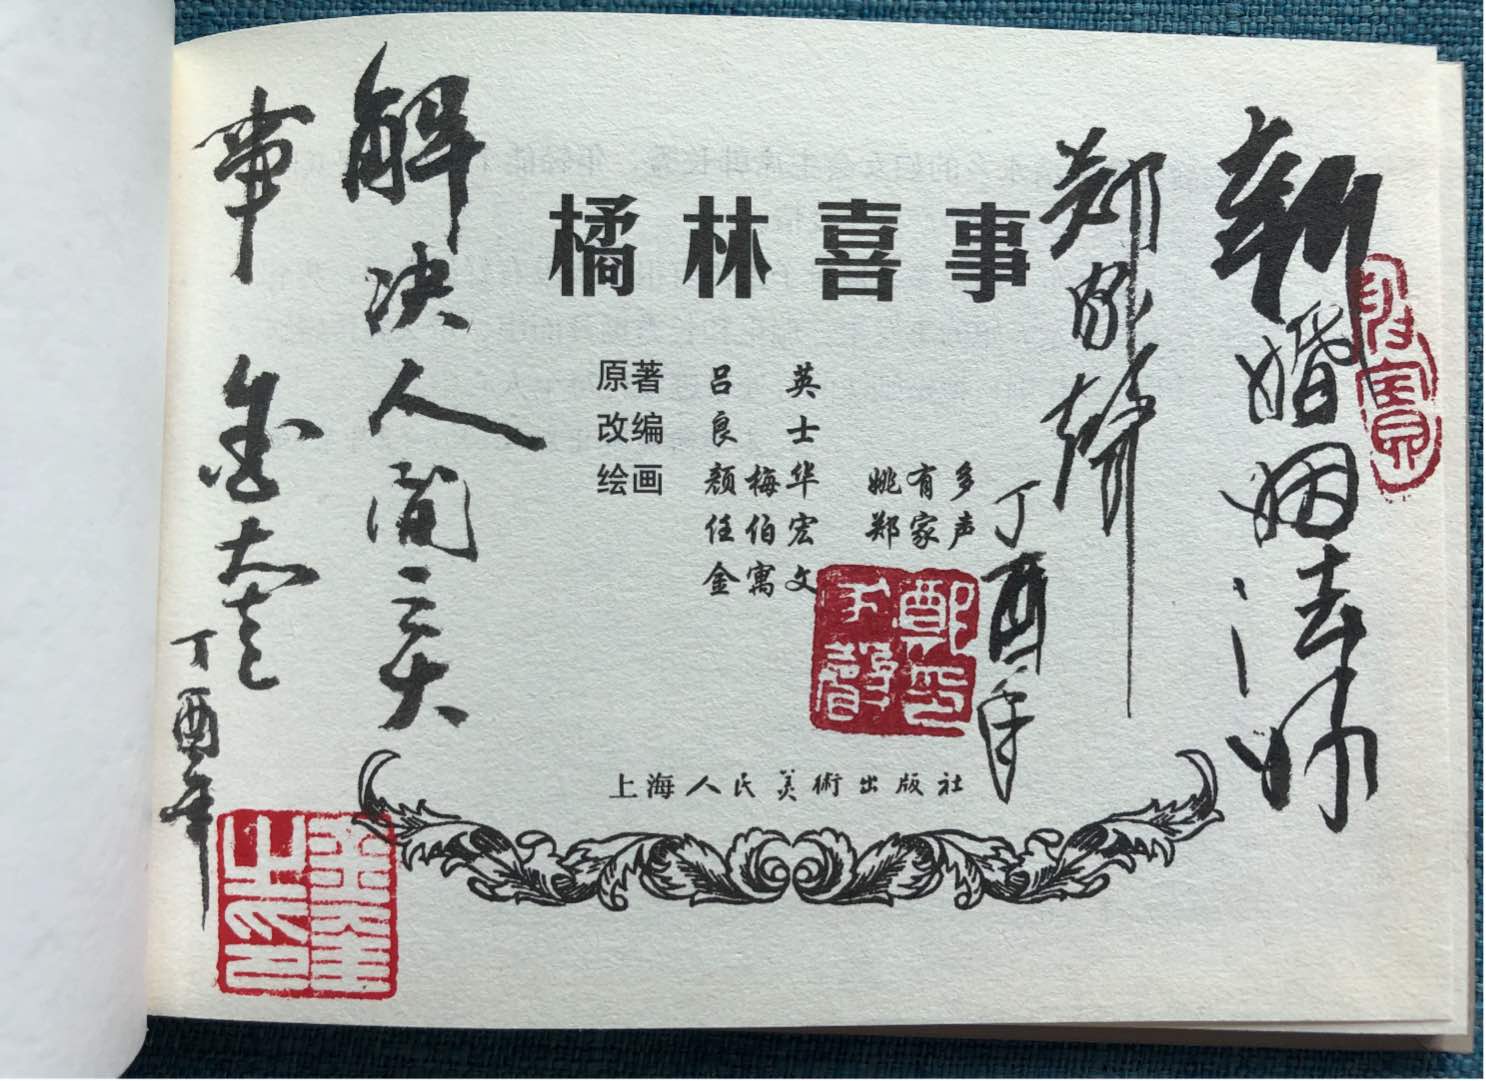 新婚姻法师
郑家聲
丁酉年
橘林喜事
原著 吕英
改编 良士
绘画 颜梅华 姚有多
任伯宏 郑家声
金寓文
鄭印家聲
上海人民美術出版社
解决人间三大
事
丁酉年